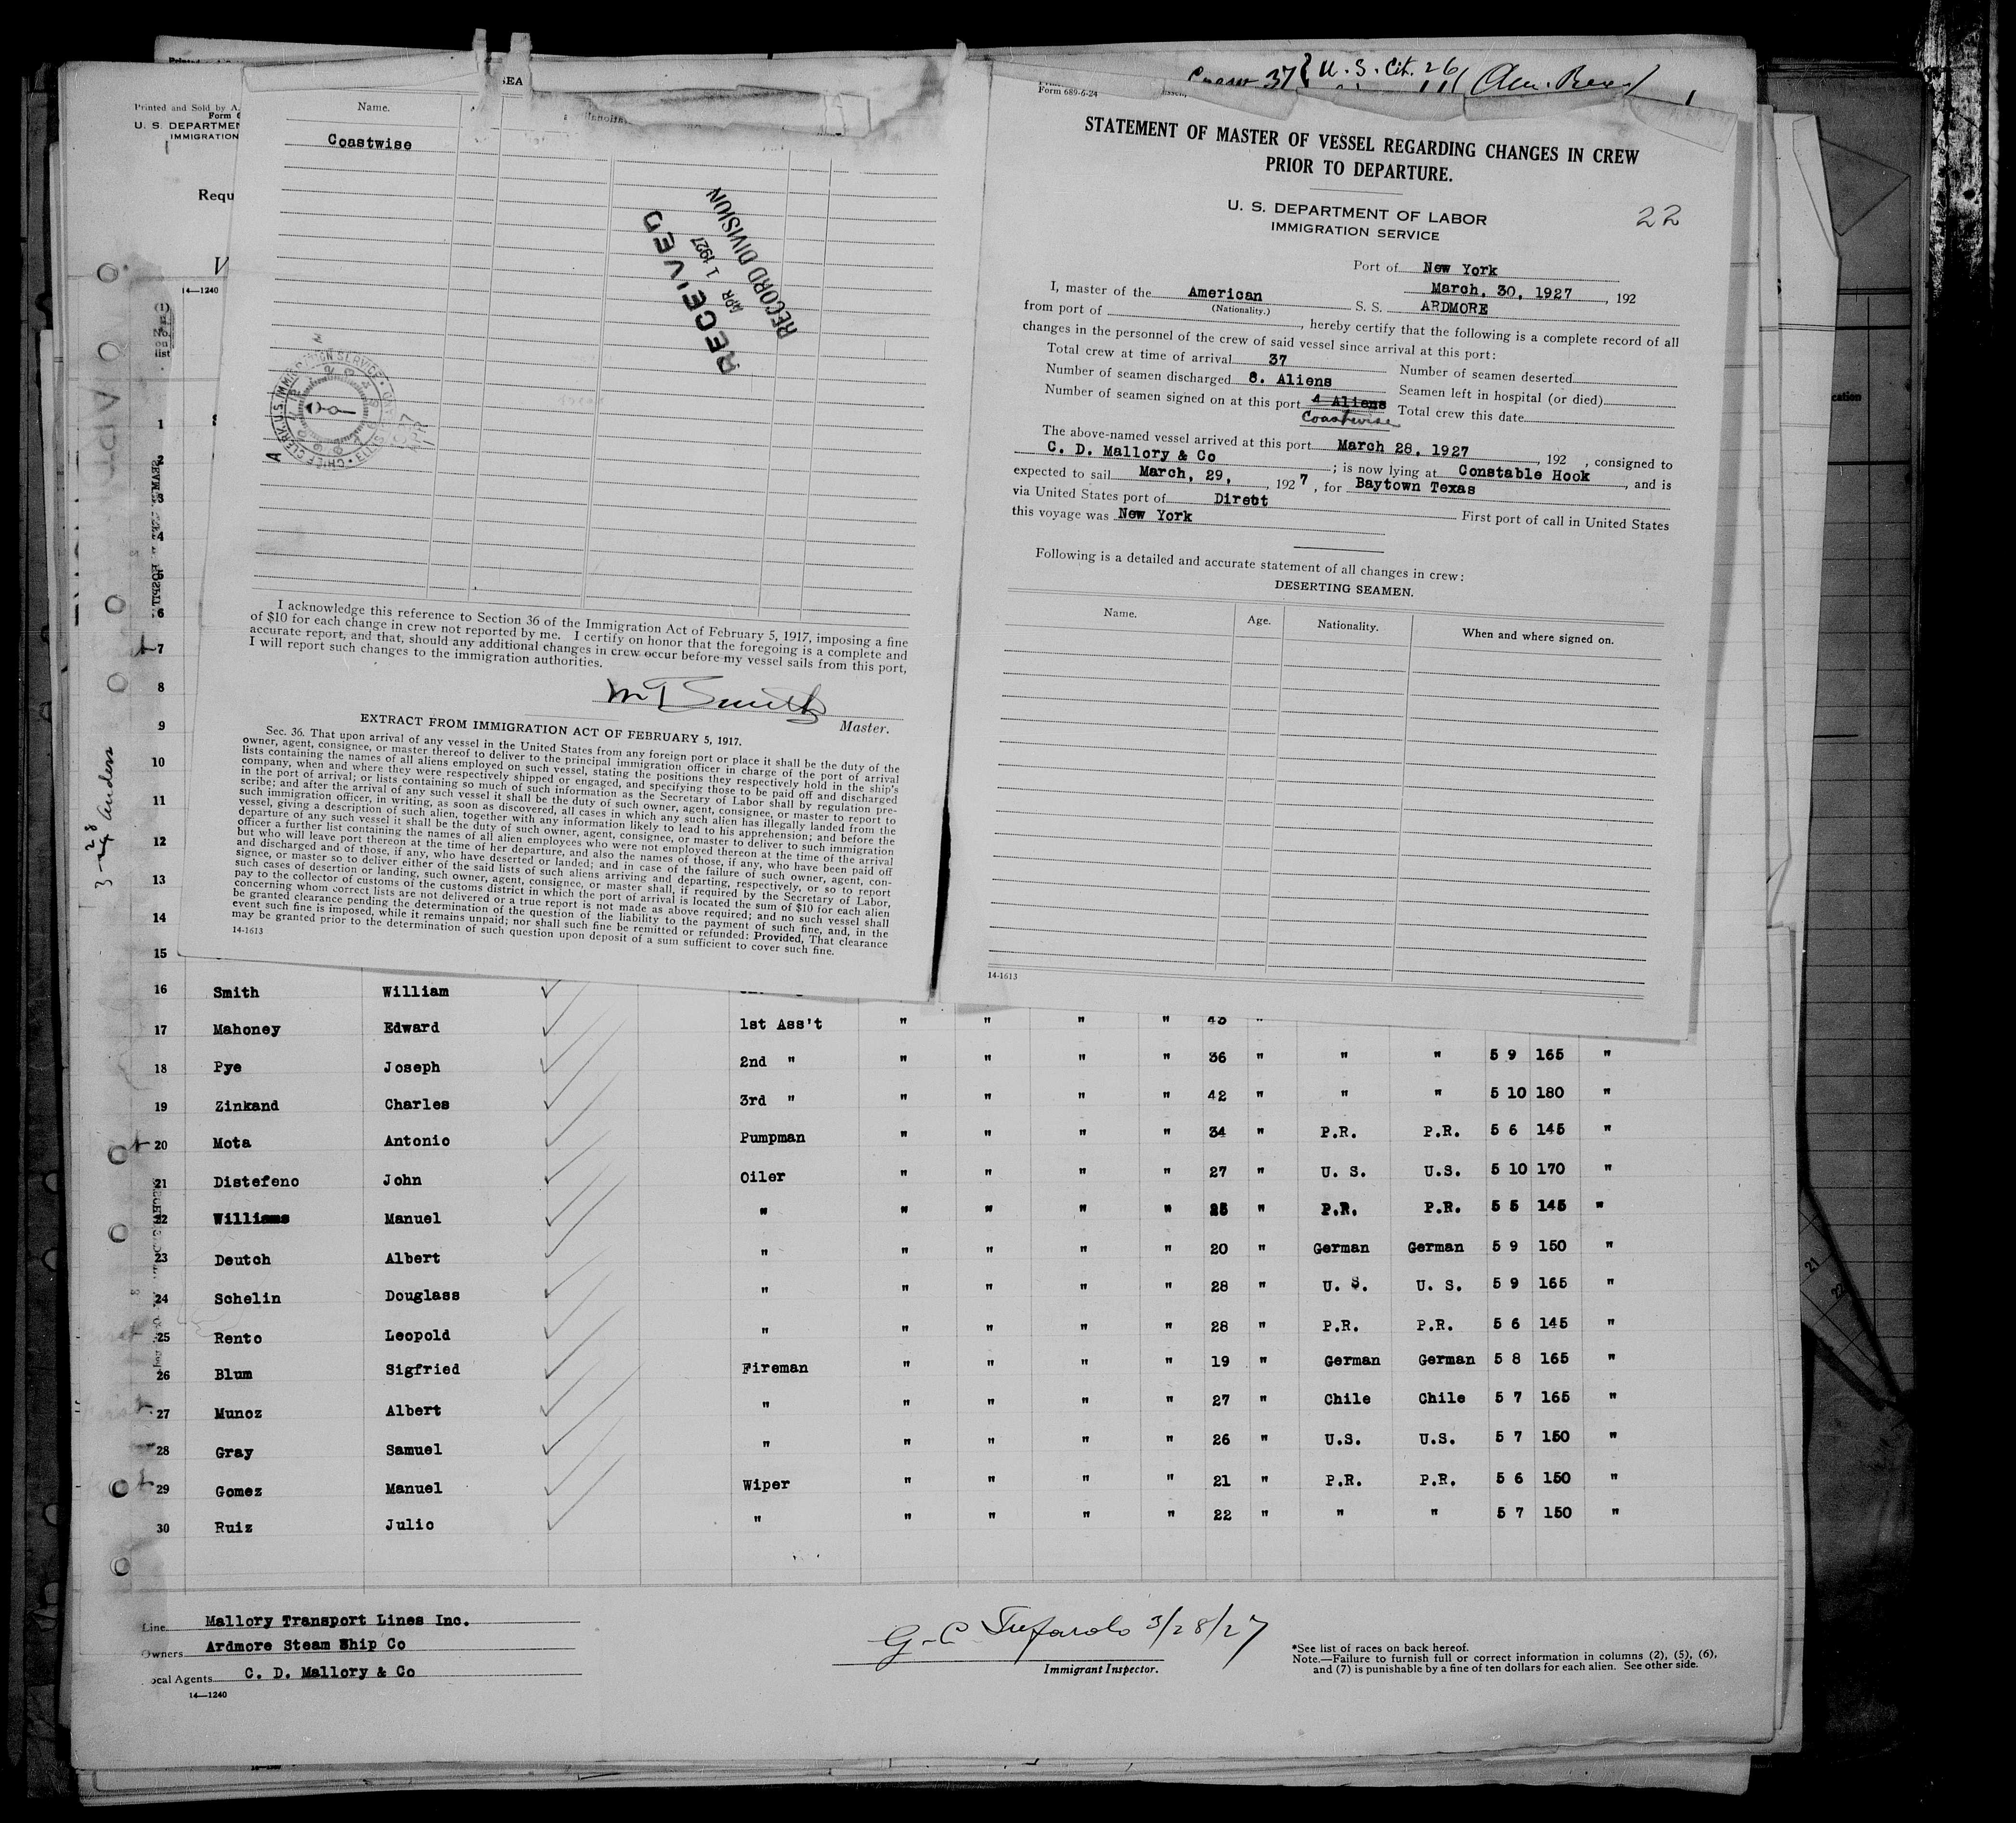 Crew 37 { U. S. Cit. 26
Printed and Sold by A.
U. S. DEPARTMEN
IMMIGRATION
Requ
14—1240
(1)
No.
on
list
1
3
4
6
7
8
9
10
11
12
13
14
15
Name.
Coastwise
RECEIVED
APR 1 1927
RECORD DIVISION
I acknowledge this reference to Section 36 of the Immigration Act of February 5, 1917, imposing a fine
of $10 for each change in crew not reported by me. I certify on honor that the foregoing is a complete and
accurate report, and that, should any additional changes in crew occur before my vessel sails from this port,
I will report such changes to the immigration authorities.
M T Smith
Master.
EXTRACT FROM IMMIGRATION ACT OF FEBRUARY 5, 1917.
Sec. 36. That upon arrival of any vessel in the United States from any foreign port or place it shall be the duty of the
owner, agent, consignee, or master thereof to deliver to the principal immigration officer in charge of the port of arrival
lists containing the names of all aliens employed on such vessel, stating the positions they respectively hold in the ship's
company, when and where they were respectively shipped or engaged, and specifying those to be paid off and discharged
in the port of arrival; or lists containing so much of such information as the Secretary of Labor shall by regulation pre-
scribe; and after the arrival of any such vessel it shall be the duty of such owner, agent, consignee, or master to report to
such immigration officer, in writing, as soon as discovered, all cases in which any such alien has illegally landed from the
vessel, giving a description of such alien, together with any information likely to lead to his apprehension; and before the
departure of any such vessel it shall be the duty of such owner, agent, consignee, or master to deliver to such immigration
officer a further list containing the names of all alien employees who were not employed thereon at the time of the arrival
but who will leave port thereon at the time of her departure, and also the names of those, if any, who have been paid off
and discharged and of those, if any, who have deserted or landed; and in case of the failure of such owner, agent, con-
signee, or master so to deliver either of the said lists of such aliens arriving and departing, respectively, or so to report
such cases of desertion or landing, such owner, agent, consignee, or master shall, if required by the Secretary of Labor,
pay to the collector of customs of the customs district in which the port of arrival is located the sum of $10 for each alien
concerning whom correct lists are not delivered or a true report is not made as above required; and no such vessel shall
be granted clearance pending the determination of the question of the liability to the payment of such fine, and, in the
event such fine is imposed, while it remains unpaid; nor shall such fine be remitted or refunded: Provided, That clearance
may be granted prior to the determination of such question upon deposit of a sum sufficient to cover such fine.
14-1613
Form 689-6-24
STATEMENT OF MASTER OF VESSEL REGARDING CHANGES IN CREW
PRIOR TO DEPARTURE.
U. S. DEPARTMENT OF LABOR
IMMIGRATION SERVICE
22
Port of New York
March, 30, 1927, 192
I, master of the American S. S. ARDMORE
(Nationality.)
from port of , hereby certify that the following is a complete record of all
changes in the personnel of the crew of said vessel since arrival at this port:
Total crew at time of arrival 37 Number of seamen deserted
Number of seamen discharged 8. Aliens Seamen left in hospital (or died)
Number of seamen signed on at this port 4 Aliens Total crew this date
Coastwise
The above-named vessel arrived at this port March 28, 1927, 192 , consigned to
C. D. Mallory & Co ; is now lying at Constable Hook, and is
expected to sail March, 29, , 1927, for Baytown Texas
via United States port of Direct First port of call in United States
this voyage was New York
Following is a detailed and accurate statement of all changes in crew:
DESERTING SEAMEN.
Name. Age. Nationality. When and where signed on.
14-1613
16 Smith William
17 Mahoney Edward 1st Ass't " " " " 43 "
18 Pye Joseph 2nd " " " " " 36 " " " 5 9 165 "
19 Zinkand Charles 3rd " " " " " 42 " " " 5 10 180 "
20 Mota Antonio Pumpman " " " " 34 " P.R. P.R. 5 6 145 "
21 Distefeno John Oiler " " " " 27 " U. S. U.S. 5 10 170 "
22 Williams Manuel " " " " " 25 " P.R. P.R. 5 5 145 "
23 Deutch Albert " " " " " 20 " German German 5 9 150 "
24 Schelin Douglass " " " " " 28 " U. S. U. S. 5 9 165 "
25 Rento Leopold " " " " " 28 " P.R. P.R. 5 6 145 "
26 Blum Sigfried Fireman " " " " 19 " German German 5 8 165 "
27 Munoz Albert " " " " " 27 " Chile Chile 5 7 165 "
28 Gray Samuel " " " " " 26 " U.S. U.S. 5 7 150 "
29 Gomez Manuel Wiper " " " " 21 " P.R. P.R. 5 6 150 "
30 Ruiz Julio " " " " " 22 " " " 5 7 150 "
Line Mallory Transport Lines Inc.
Owners Ardmore Steam Ship Co
ocal Agents C. D. Mallory & Co
14—1240
3/28/27
Immigrant Inspector.
*See list of races on back hereof.
Note.—Failure to furnish full or correct information in columns (2), (5), (6),
and (7) is punishable by a fine of ten dollars for each alien. See other side.